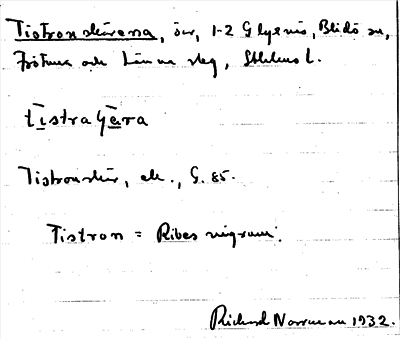 Tistronskärena, öar, 1-2 G lyenö, Blidö sn,
Frötuna och Länna slg, Sthlms l.
tistragāra
Tistronskär, ek., G. 85.
Tistron = Ribes nigrum.
Richard Norrman 1932.